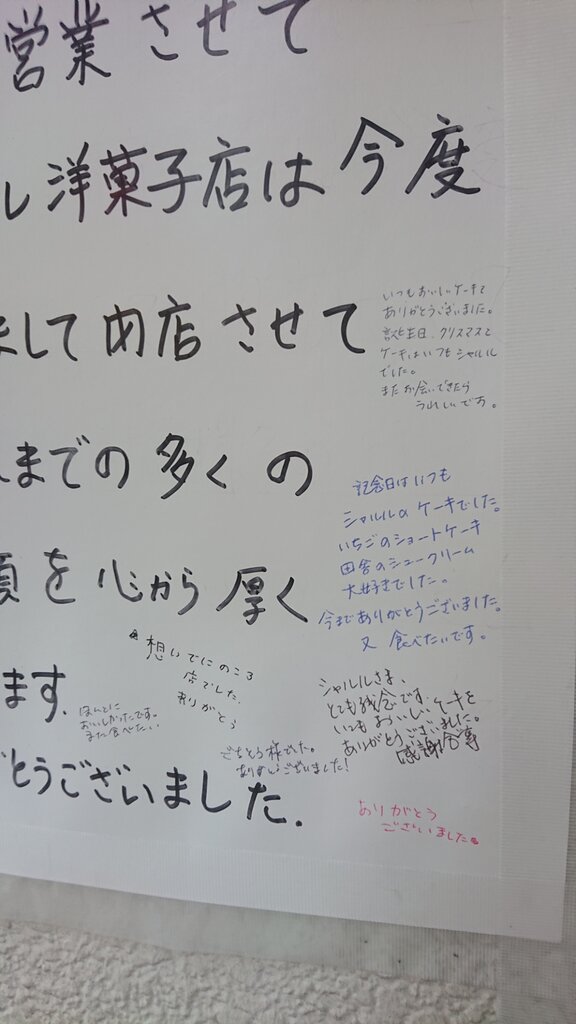 営業させて
ル洋菓子店は今度
まして閉店させて
いつもおいしいケーキを
ありがとうございました。
誕生日、クリスマスと
ケーキはいつもシャルル
でした。
またお会いできたら
うれしいです。
までの多くの
記念日はいつも
シャルルのケーキでした。
いちごのショートケーキ
田舎のシュークリーム
大好きでした。
今までありがとうございました。
又食べたいです。
を心から厚く
想いでにのこる
店でした。
ありがとう
ます.
ほんとに
おいしかったです。
また食べたい
シャルルさま、
とても残念です。
いつもおいしいケーキを
ありがとうございました。
感謝
ごちそう様でした。
ありがとうございました!
どうございました.
ありがとう
ございました